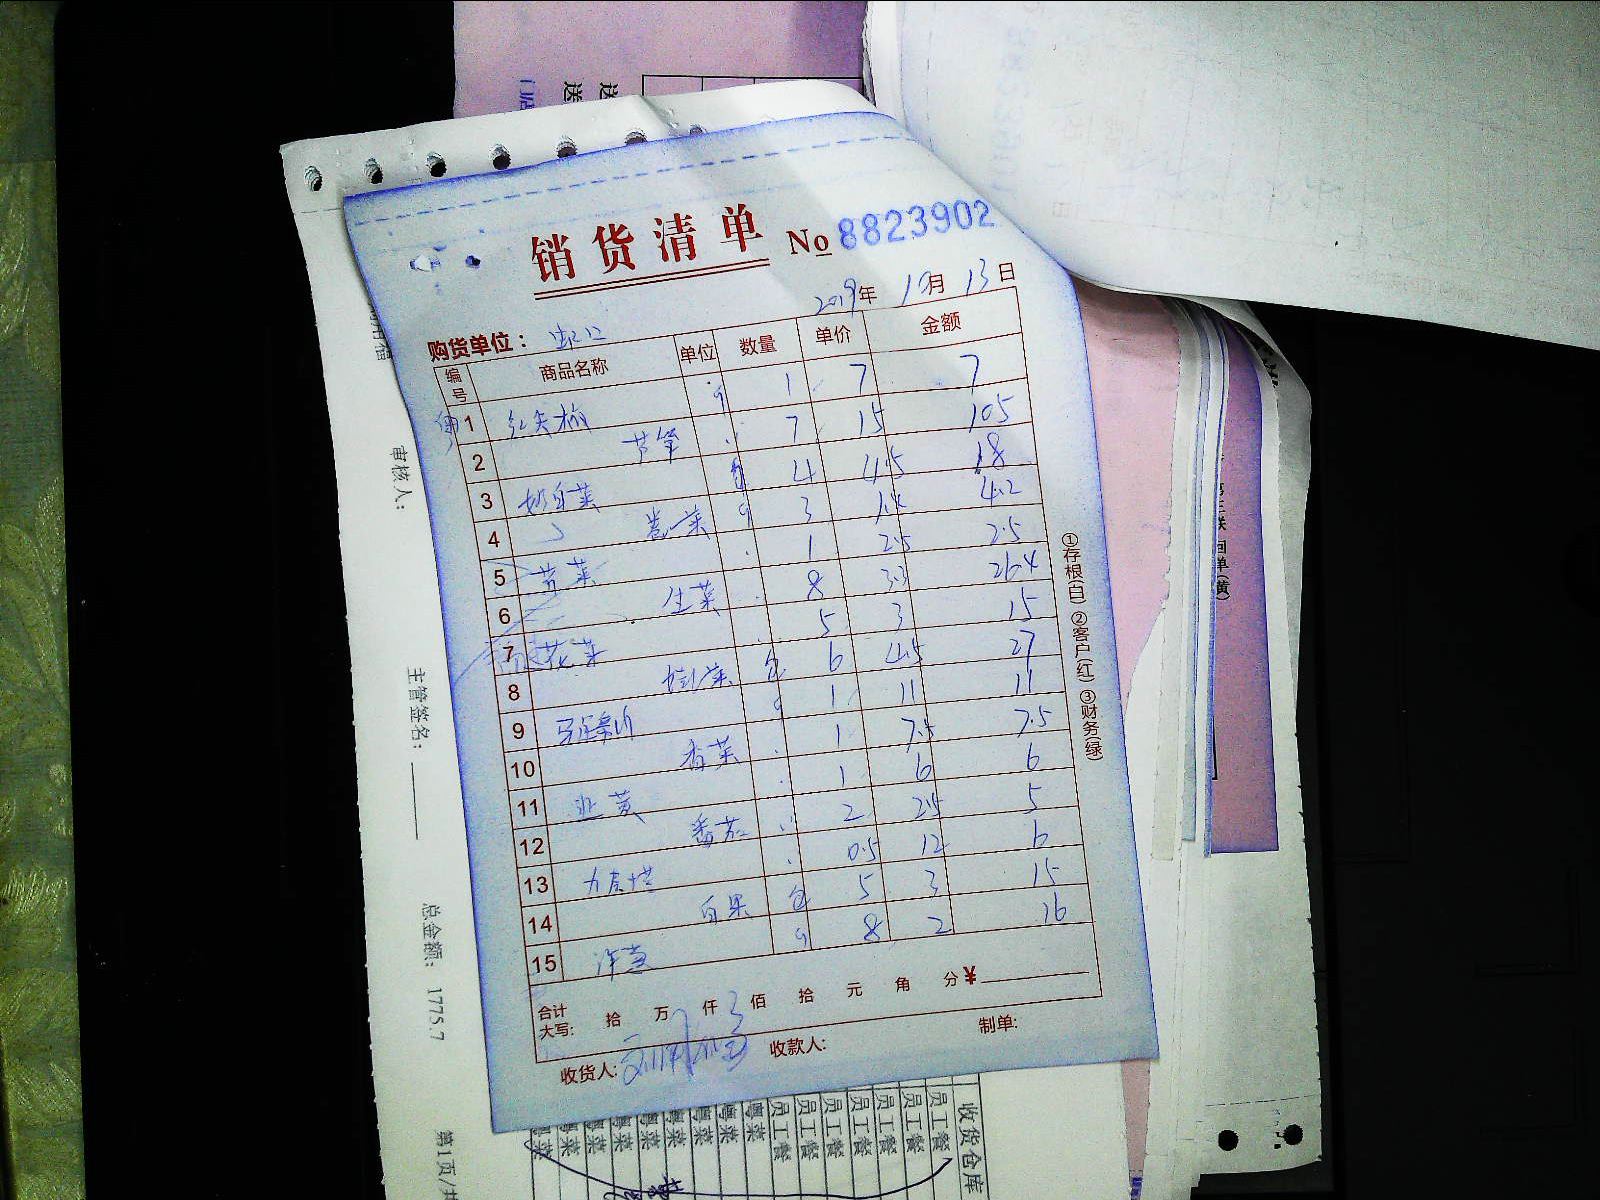 销货清单 No 8823902
2019年 10月 13日
购货单位：
编号 商品名称 单位 数量 单价 金额
1 红尖椒 1 7 7
2 芦笋 7 15 105
3 奶白菜 4 4.5 18
4 卷心菜 3 1.4 4.2
5 芹菜 1 2.5 2.5
6 生菜 8 3.3 26.4
7 花菜 5 3 15
8 娃菜 包 6 4.5 27
9 1 11 11
10 香菜 1 7.5 7.5
11 韭黄 1 6 6
12 番茄 2 2.5 5
13 九层塔 0.5 12 6
14 百果 包 5 3 15
15 洋葱 8 2 16
合计
大写: 拾 万 仟 佰 拾 元 角 分 ¥
收货人: 收款人: 制单:
①存根(白) ②客户(红) ③财务(绿)
审核人：
主管签名：
总金额： 1775.7
第1页/共
第三联 回单(黄)
收货仓库
员工餐
员工餐
员工餐
员工餐
员工餐
员工餐
员工餐
粤菜
粤菜
粤菜
粤菜
粤菜
粤菜